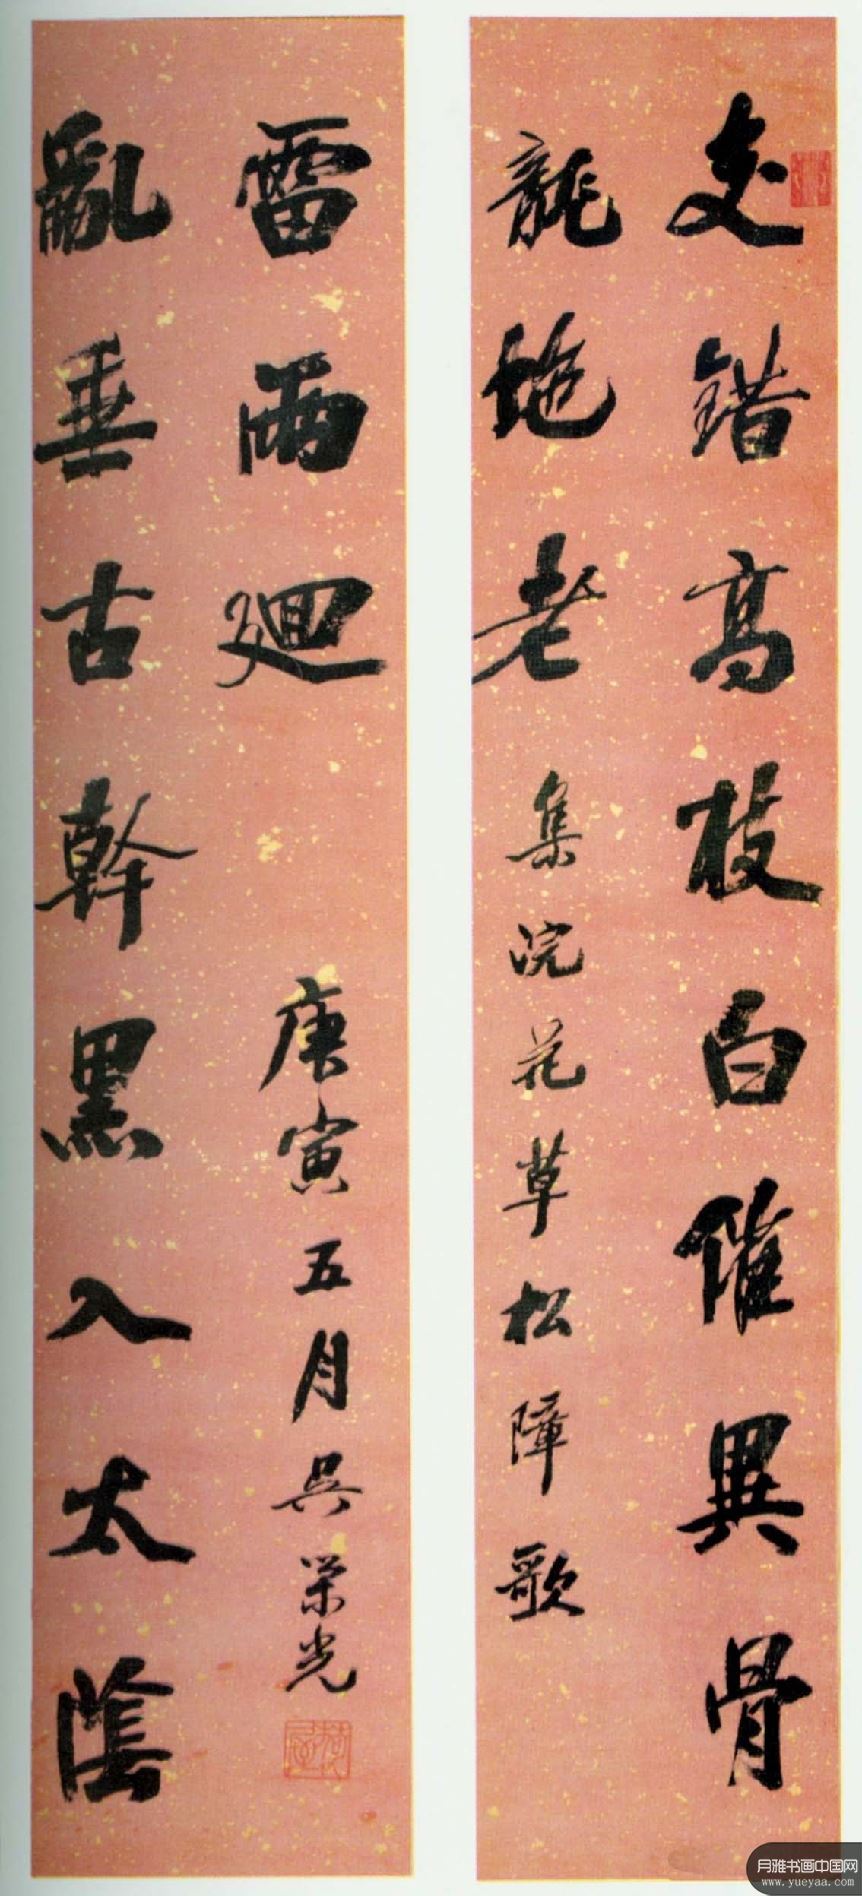 交錯高枝白催異骨
龍虵老
集浣花草松障歌
亂垂古幹黑入太陰
雷雨廻
庚寅五月吳榮光
月雅书画中国网
www.yueyaa.com